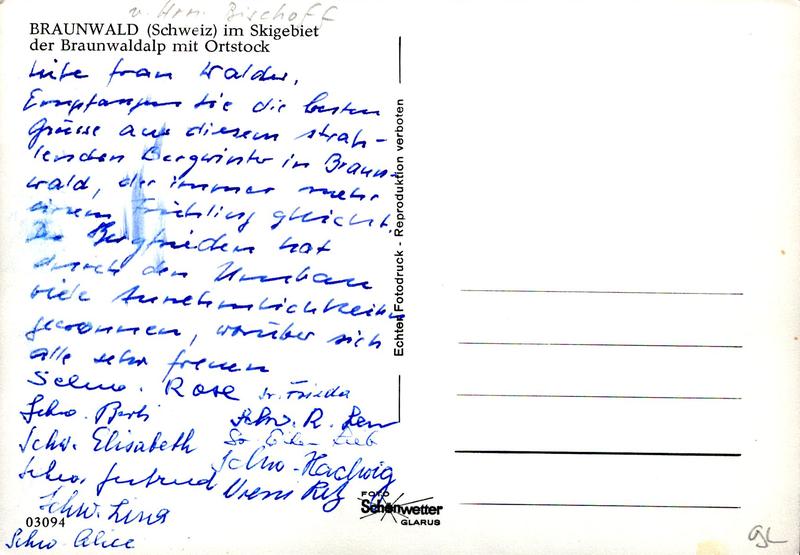 v. Hrn. Bischoff
BRAUNWALD (Schweiz) im Skigebiet
der Braunwaldalp mit Ortstock
Liebe Frau Walder,
Empfangen Sie die besten
Grüsse aus diesem strah-
lenden Bergwinter in Braun-
wald, der immer mehr
einem Frühling gleicht.
Der Bergfrieden hat
durch den Umbau
viele Annehmlichkeiten
gewonnen, worüber sich
alle sehr freuen
Schw. Rose Sr. Frieda
Schw. Berti Schw. R.
Schw. Elisabeth Sr.
Schw. Gertrud Schw. Hadwig
Schw. Lina Vreni
Schw. Alice
03094
Echter Fotodruck - Reproduktion verboten
FOTO
Schönwetter
GLARUS
GL